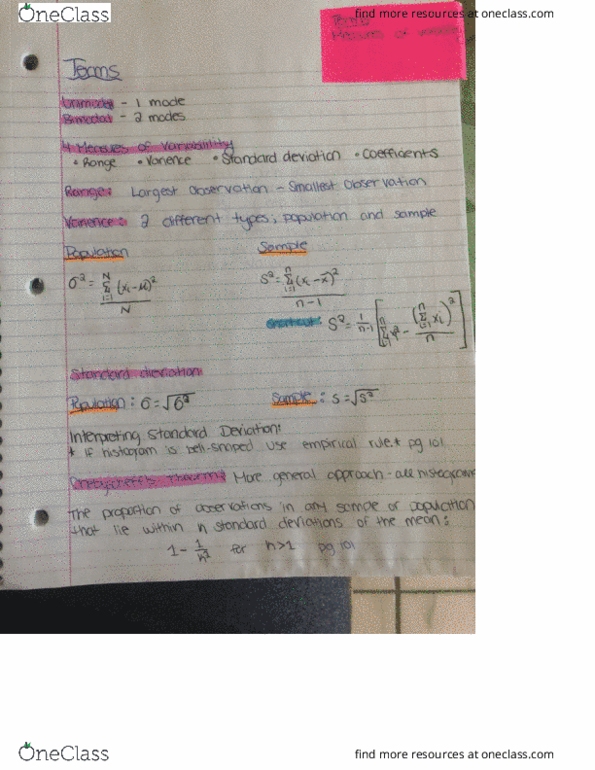 OneClass
find more resources at oneclass.com
Terms
Terms
Measures of
Unimodal - 1 mode
Bimodal - 2 modes
4 Measures of Variability
• Range • Varience • Standard deviation • Coefficients
Range: Largest observation - Smallest observation
Varience: 2 different types; population and sample
Population Sample
σ² = N Σ i=1 (xᵢ-μ)² / N
S² = n Σ i=1 (xᵢ-x̄)² / n-1
Shortcut: S² = 1/n-1 [ n Σ i=1 xᵢ² - (n Σ i=1 xᵢ)² / n ]
Standard deviation
Population: σ=√σ² Sample: s=√s²
Interpreting Standard Deviation:
* If histogram is bell-shaped use empirical rule.* pg 101
More general approach - all histograms
The proportion of observations in any sample or population
that lie within n standard deviations of the mean:
1 - 1/n² for n>1 pg 101
OneClass
find more resources at oneclass.com